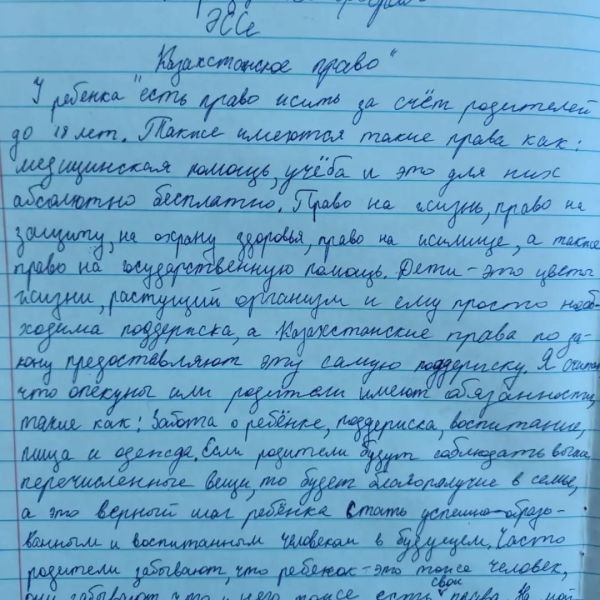 Эссе
"Казахстанское право"
У ребенка есть право жить за счёт родителей
до 18 лет. Также имеются такие права как:
медицинская помощь, учёба и это для них
абсолютно бесплатно. Право на жизнь, право на
защиту, на охрану здоровья, право на жилище, а также
право на государственную помощь. Дети - это цветы
жизни, растущий организм и ему просто необ-
ходима поддержка, а Казахстанские права по за-
кону предоставляют эту самую поддержку. Я считаю
что опекуны или родители имеют обязанности,
такие как: Забота о ребёнке, поддержка, воспитание,
пища и одежда. Если родители будут соблюдать выше
перечисленные вещи, то будет благополучие в семье,
а это верный шаг ребёнка стать успешно образо-
ванным и воспитанным человеком в будущем. Часто
родители забывают, что ребенок - это тоже человек,
они забывают что у него тоже есть свои права. На